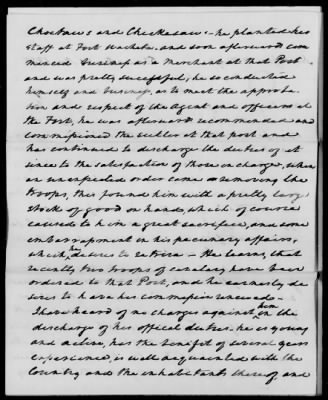 Choctaws and Chickasaws - he planted his
staff at Fort Washita, and soon afterward com
menced business as a Merchant at that Post
and was pretty successful, he so conducted
himself and business, as to meet the approba
tion and respect of the Agent and officers at
the Fort, he was afterward recommended and
commissioned the sutler at that post and
has continued to discharge the duties of it
since to the satisfaction of those in charge, when
an unexpected order came removing the
troops, this found him with a pretty large
stock of good on hand, which of course
caused to him a great sacrifice, and some
embarrassment in his pecuniary affairs,
which he desires to retrieve - He learns, that
recently two troops of cavalry have been
ordered to that Post, and he earnestly de
sires to have his commission renewed -
I have heard of no charges against him in the
discharge of his official duties - he is young
and active, has the benefit of several years
experience, is well acquainted with the
Country and the inhabitants thereof, and